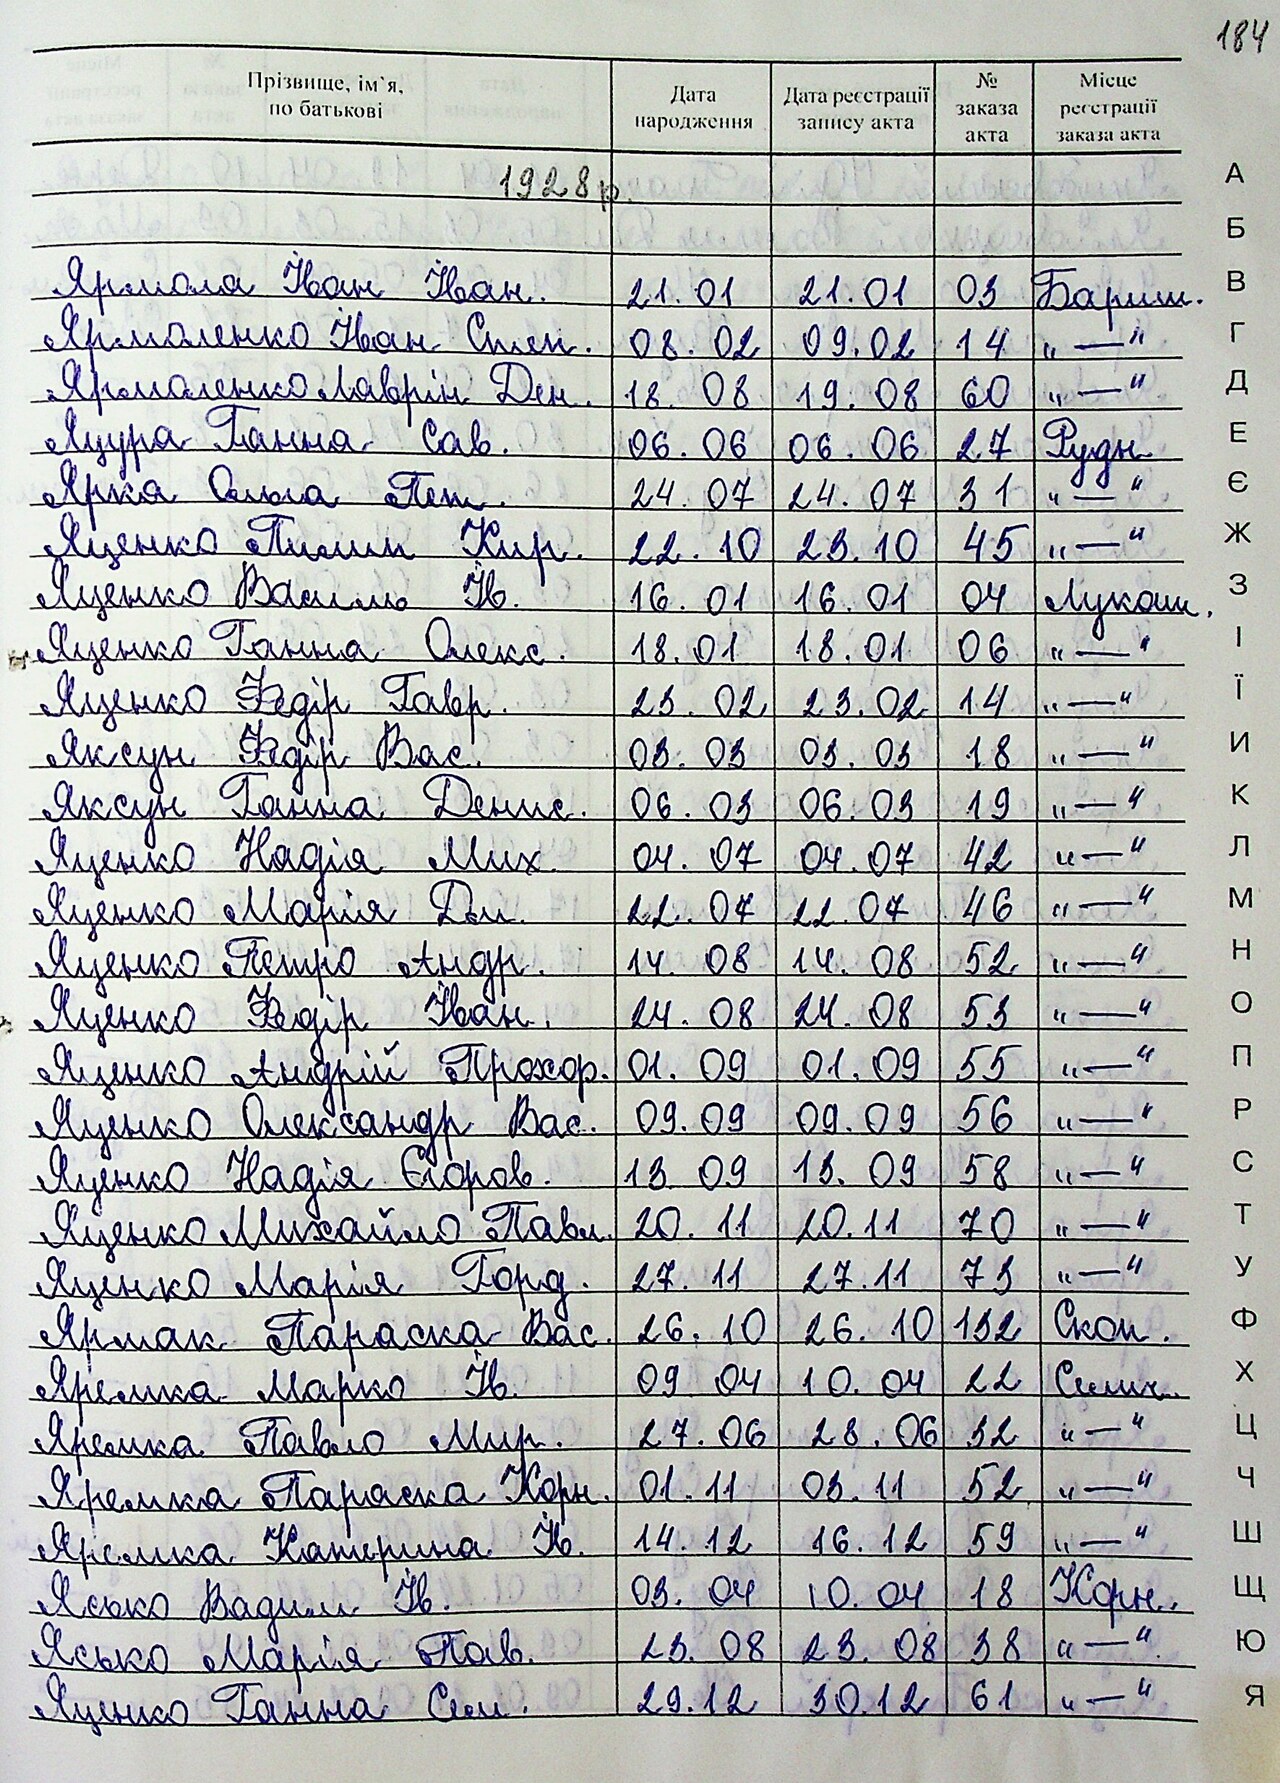 184
Прізвище, ім`я, по батькові | Дата народження | Дата реєстрації запису акта | № заказа акта | Місце реєстрації заказа акта
1928 р. А
Б
Ярмола Іван Іван. 21.01 21.01 03 Бариш. В
Ярмоленко Іван Степ. 08.02 09.02 14 „—“ Г
Ярмоленко Лаврін Ден. 18.08 19.08 60 „—“ Д
Яцура Ганна Сав. 06.06 06.06 27 Рудн Е
Ярка Ольга Пет. 24.07 24.07 31 „—“ Є
Яценко Пилип Кир. 22.10 23.10 45 „—“ Ж
Яценко Василь Ів. 16.01 16.01 04 Лукаш. З
Яценко Ганна Олекс. 18.01 18.01 06 „—“ І
Яценко Федір Гавр. 23.02 23.02 14 „—“ Ї
Яксун Федір Вас. 03.03 03.03 18 „—“ И
Яксун Ганна Денис. 06.03 06.03 19 „—“ К
Яценко Надія Мих. 04.07 04.07 42 „—“ Л
Яценко Марія Дм. 22.07 22.07 46 „—“ М
Яценко Петро Андр. 14.08 14.08 52 „—“ Н
Яценко Федір Іван. 24.08 24.08 53 „—“ О
Яценко Андрій Прохор. 01.09 01.09 55 „—“ П
Яценко Олександр Вас. 09.09 09.09 56 „—“ Р
Яценко Надія Єгоров. 13.09 13.09 58 „—“ С
Яценко Михайло Павл. 20.11 20.11 70 „—“ Т
Яценко Марія Горд. 27.11 27.11 73 „—“ У
Ярмак Параска Вас. 26.10 26.10 132 Скоп. Ф
Яремка Марко Ів. 09.04 10.04 22 Селич. Х
Яремка Павло Мир. 27.06 28.06 32 „—“ Ц
Яремка Параска Корн. 01.11 03.11 52 „—“ Ч
Яремка Катерина Ів. 14.12 16.12 59 „—“ Ш
Ясько Вадим Ів. 03.04 10.04 18 Корн. Щ
Ясько Марія Пав. 23.08 23.08 38 „—“ Ю
Яценко Ганна Сем. 29.12 30.12 61 „—“ Я